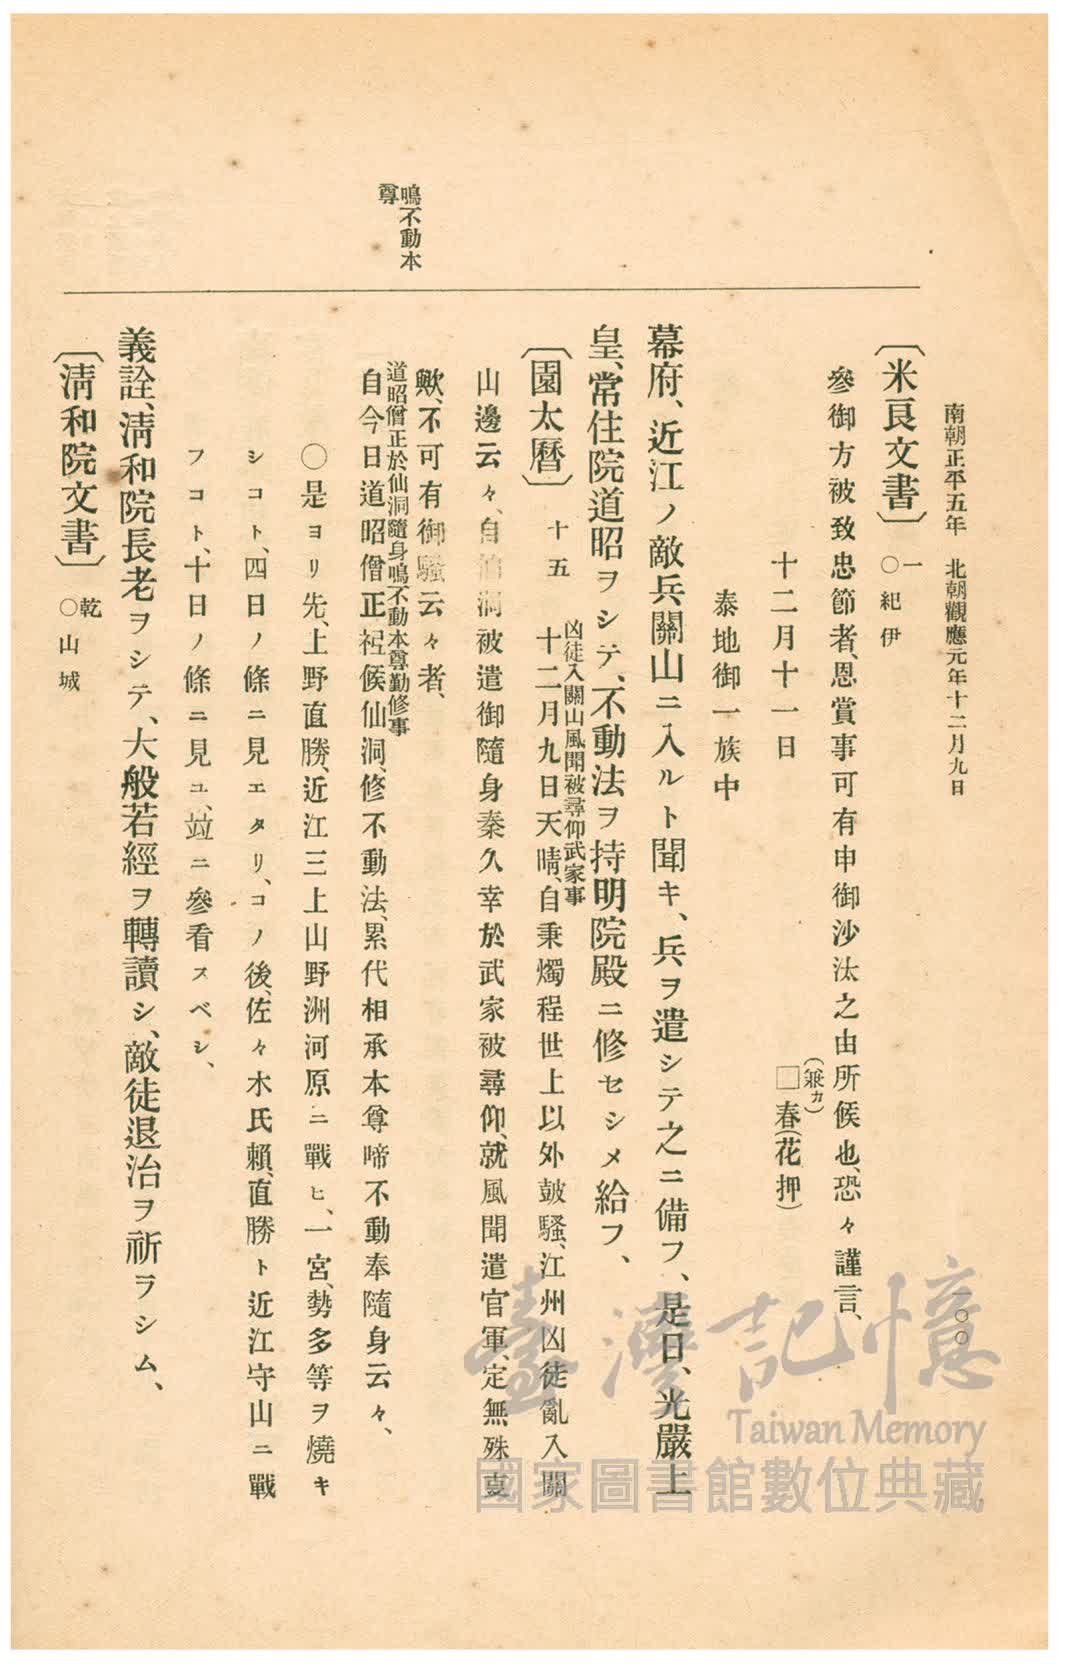 南朝正平五年　北朝觀應元年十二月九日
一〇〇
〔米良文書〕　一　○紀伊
參御方被致忠節者、恩賞事可有申御沙汰之由所候也、恐々謹言、
（兼カ）
十二月十一日　□春（花押）
泰地御一族中
幕府、近江ノ敵兵關山ニ入ルト聞キ、兵ヲ遣シテ之ニ備フ、是日、光嚴上
皇、常住院道昭ヲシテ、不動法ヲ持明院殿ニ修セシメ給フ、
凶徒入關山風聞被尋仰武家事
〔園太曆〕　十五　十二月九日天晴、自秉燭程世上以外皷騷、江州凶徒亂入關
山邊云々、自仙洞被遣御隨身秦久幸於武家被尋仰、就風聞遣官軍、定無殊㕝
歟、不可有御騷云々者、
道昭僧正於仙洞隨身鳴不動本尊勤修事
鳴不動本
尊
自今日道昭僧正祗候仙洞、修不動法、累代相承本尊啼不動奉隨身云々、
○是ヨリ先、上野直勝、近江三上山野洲河原ニ戰ヒ、一宮、勢多等ヲ燒キ
シコト、四日ノ條ニ見エタリ、コノ後、佐々木氏賴、直勝ト近江守山ニ戰
フコト、十日ノ條ニ見ユ、竝ニ參看スベシ、
義詮、淸和院長老ヲシテ、大般若經ヲ轉讀シ、敵徒退治ヲ祈ラシム、
〔淸和院文書〕　乾　○山城
臺灣記憶
Taiwan Memory
國家圖書館數位典藏